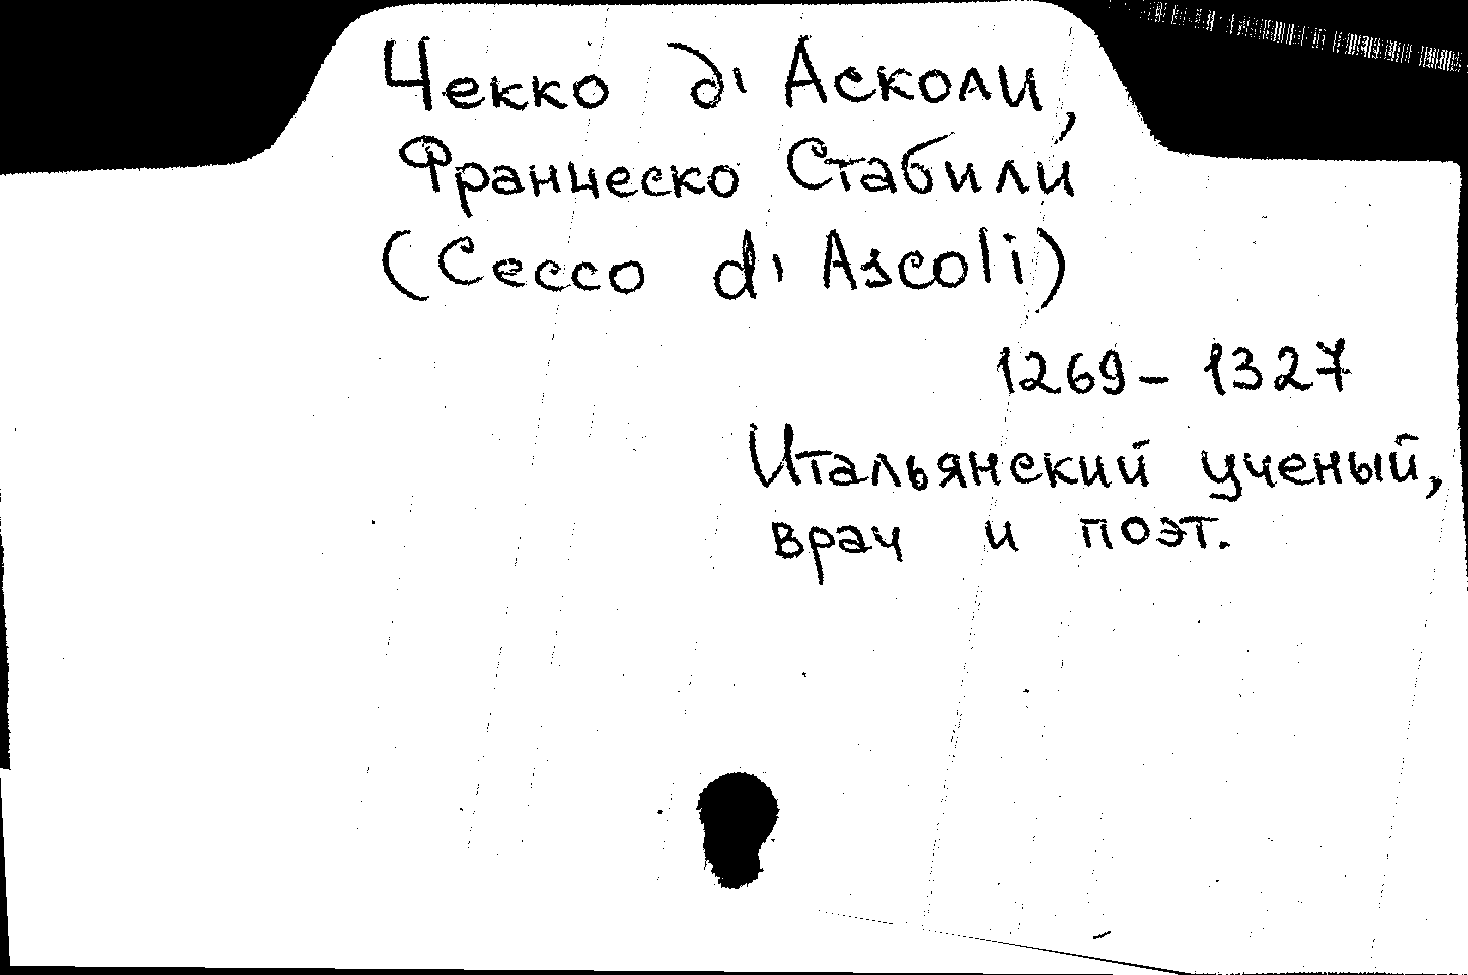 Чекко д' Асколи,
Франческо Стабили
(Cecco d' Ascoli)
1269 - 1327
Итальянский ученый,
врач и поэт.